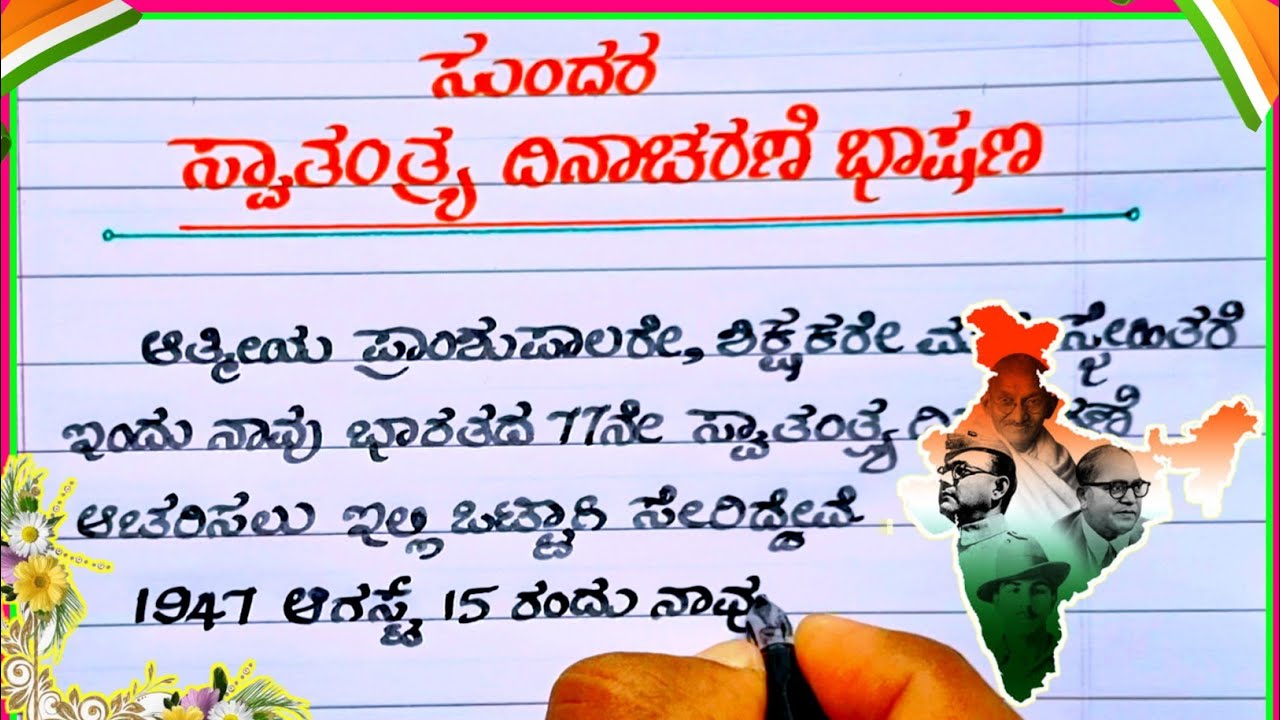 ಸುಂದರ
ಸ್ವಾತಂತ್ರ್ಯ ದಿನಾಚರಣೆ ಭಾಷಣ
ಆತ್ಮೀಯ ಪ್ರಾಂಶುಪಾಲರೇ, ಶಿಕ್ಷಕರೇ ಸ್ನೇಹಿತರೆ
ಇಂದು ನಾವು ಭಾರತದ 77ನೇ ಸ್ವಾತಂತ್ರ್ಯ
ಆಚರಿಸಲು ಇಲ್ಲಿ ಒಟ್ಟಾಗಿ ಸೇರಿದ್ದೇವೆ
1947 ಆಗಸ್ಟ್ 15 ರಂದು ನಾವು